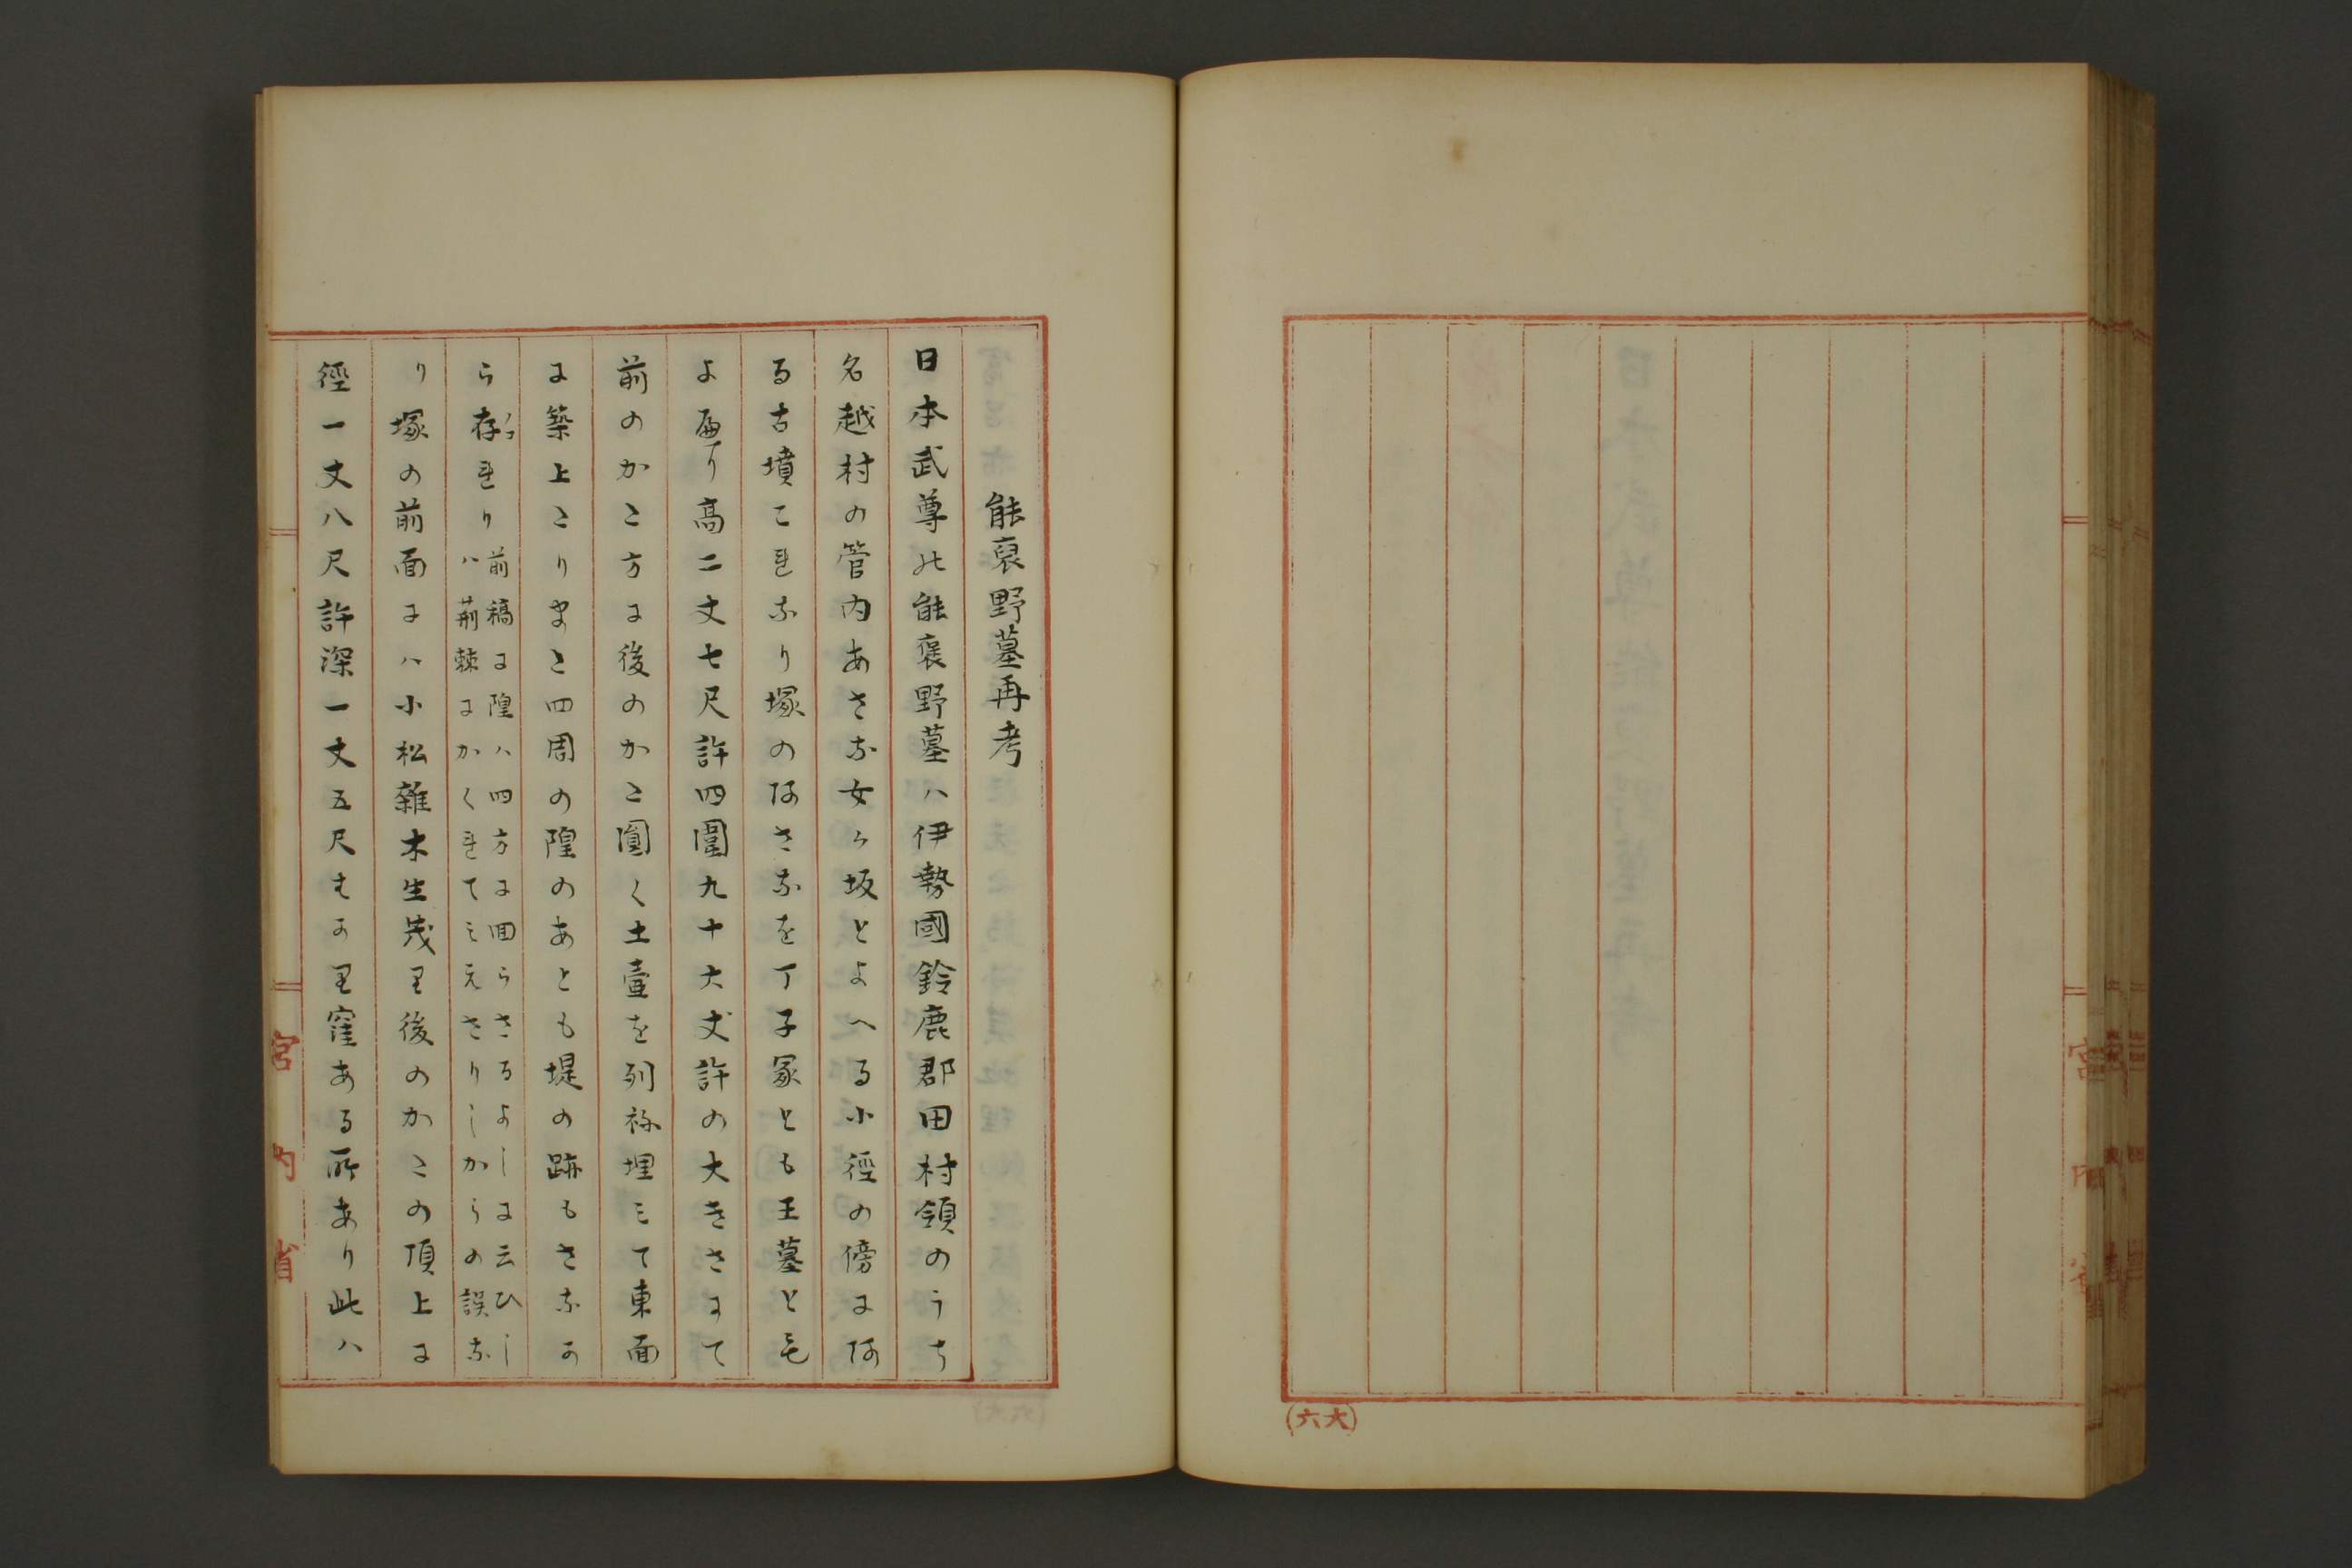 (六大)
能裒野墓再考
日本武尊の能褒野墓ハ伊勢國鈴鹿郡田村領のうち
名越村の管内あさな女ヶ坂とよへる小徑の傍にあ
る古墳これなり塚のあさなを丁子冢とも王墓とも
よへり高二丈七尺許四圍九十大丈許の大きさにて
前のかた方に後のかた圓く土壷を列ね埋ミて東面
に築上たりまた四周の隍のあとも堤の跡もさなか
ら存れり
ノコ
前稿に隍ハ四方に囬らさるよしに云ひし
ハ荊棘にかくれてミえさりしからの誤な
り塚の前面にハ小松雜木生茂里後のかたの頂上に
徑一丈八尺許深一丈五尺もかり窪ある所あり此ハ
宮内省